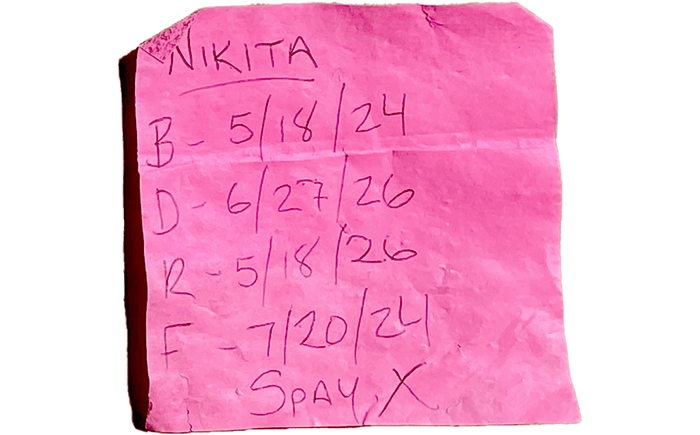 NIKITA
B- 5/18/24
D- 6/27/26
R-5/18/26
F -7/20/24
SPAY, X